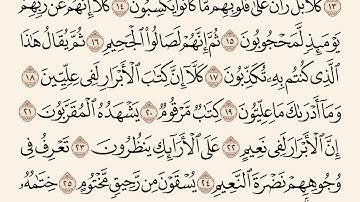 ١٣ كَلَّا بَلْ رَانَ عَلَىٰ قُلُوبِهِم مَّا كَانُوا۟ يَكْسِبُونَ ١٤ كَلَّآ إِنَّهُمْ عَن رَّبِّهِمْ
يَوْمَئِذٍ لَّمَحْجُوبُونَ ١٥ ثُمَّ إِنَّهُمْ لَصَالُوا۟ ٱلْجَحِيمِ ١٦ ثُمَّ يُقَالُ هَٰذَا
ٱلَّذِى كُنتُم بِهِۦ تُكَذِّبُونَ ١٧ كَلَّآ إِنَّ كِتَٰبَ ٱلْأَبْرَارِ لَفِى عِلِّيِّينَ ١٨
وَمَآ أَدْرَىٰكَ مَا عِلِّيُّونَ ١٩ كِتَٰبٌ مَّرْقُومٌ ٢٠ يَشْهَدُهُ ٱلْمُقَرَّبُونَ ٢١
إِنَّ ٱلْأَبْرَارَ لَفِى نَعِيمٍ ٢٢ عَلَى ٱلْأَرَآئِكِ يَنظُرُونَ ٢٣ تَعْرِفُ فِى
وُجُوهِهِمْ نَضْرَةَ ٱلنَّعِيمِ ٢٤ يُسْقَوْنَ مِن رَّحِيقٍ مَّخْتُومٍ ٢٥ خِتَٰمُهُۥ